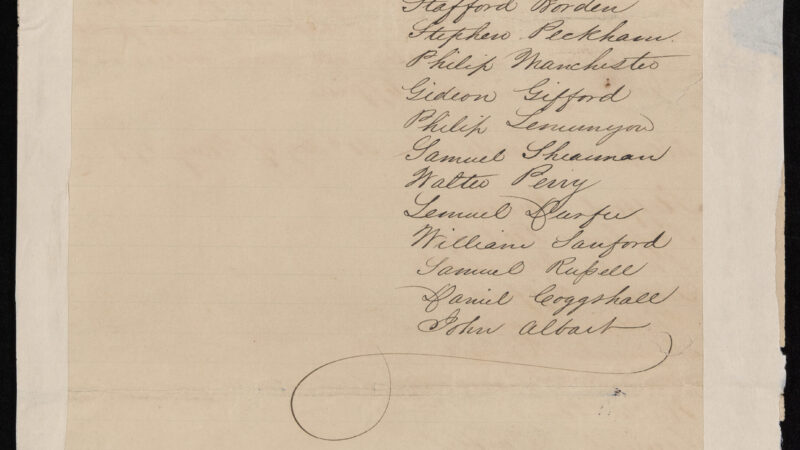 Stafford Borden
Stephen Peckham.
Philip Manchester
Gideon Gifford
Philip Lemunyon
Samuel Shearman
Walter Perry
Lemuel Durfee
William Sanford
Samuel Ruſsell
Daniel Coggshall
John Albart